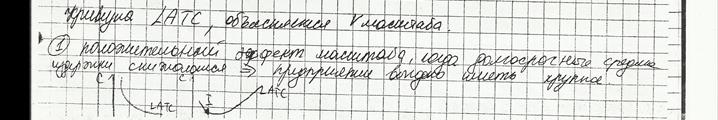 кривую LATC, объясняется V масштаба.
① положительный эффект масштаба, когда долгосрочные средние
издержки снижаются ⇒ предприятие выгодно иметь крупное.
C C
LATC I LATC